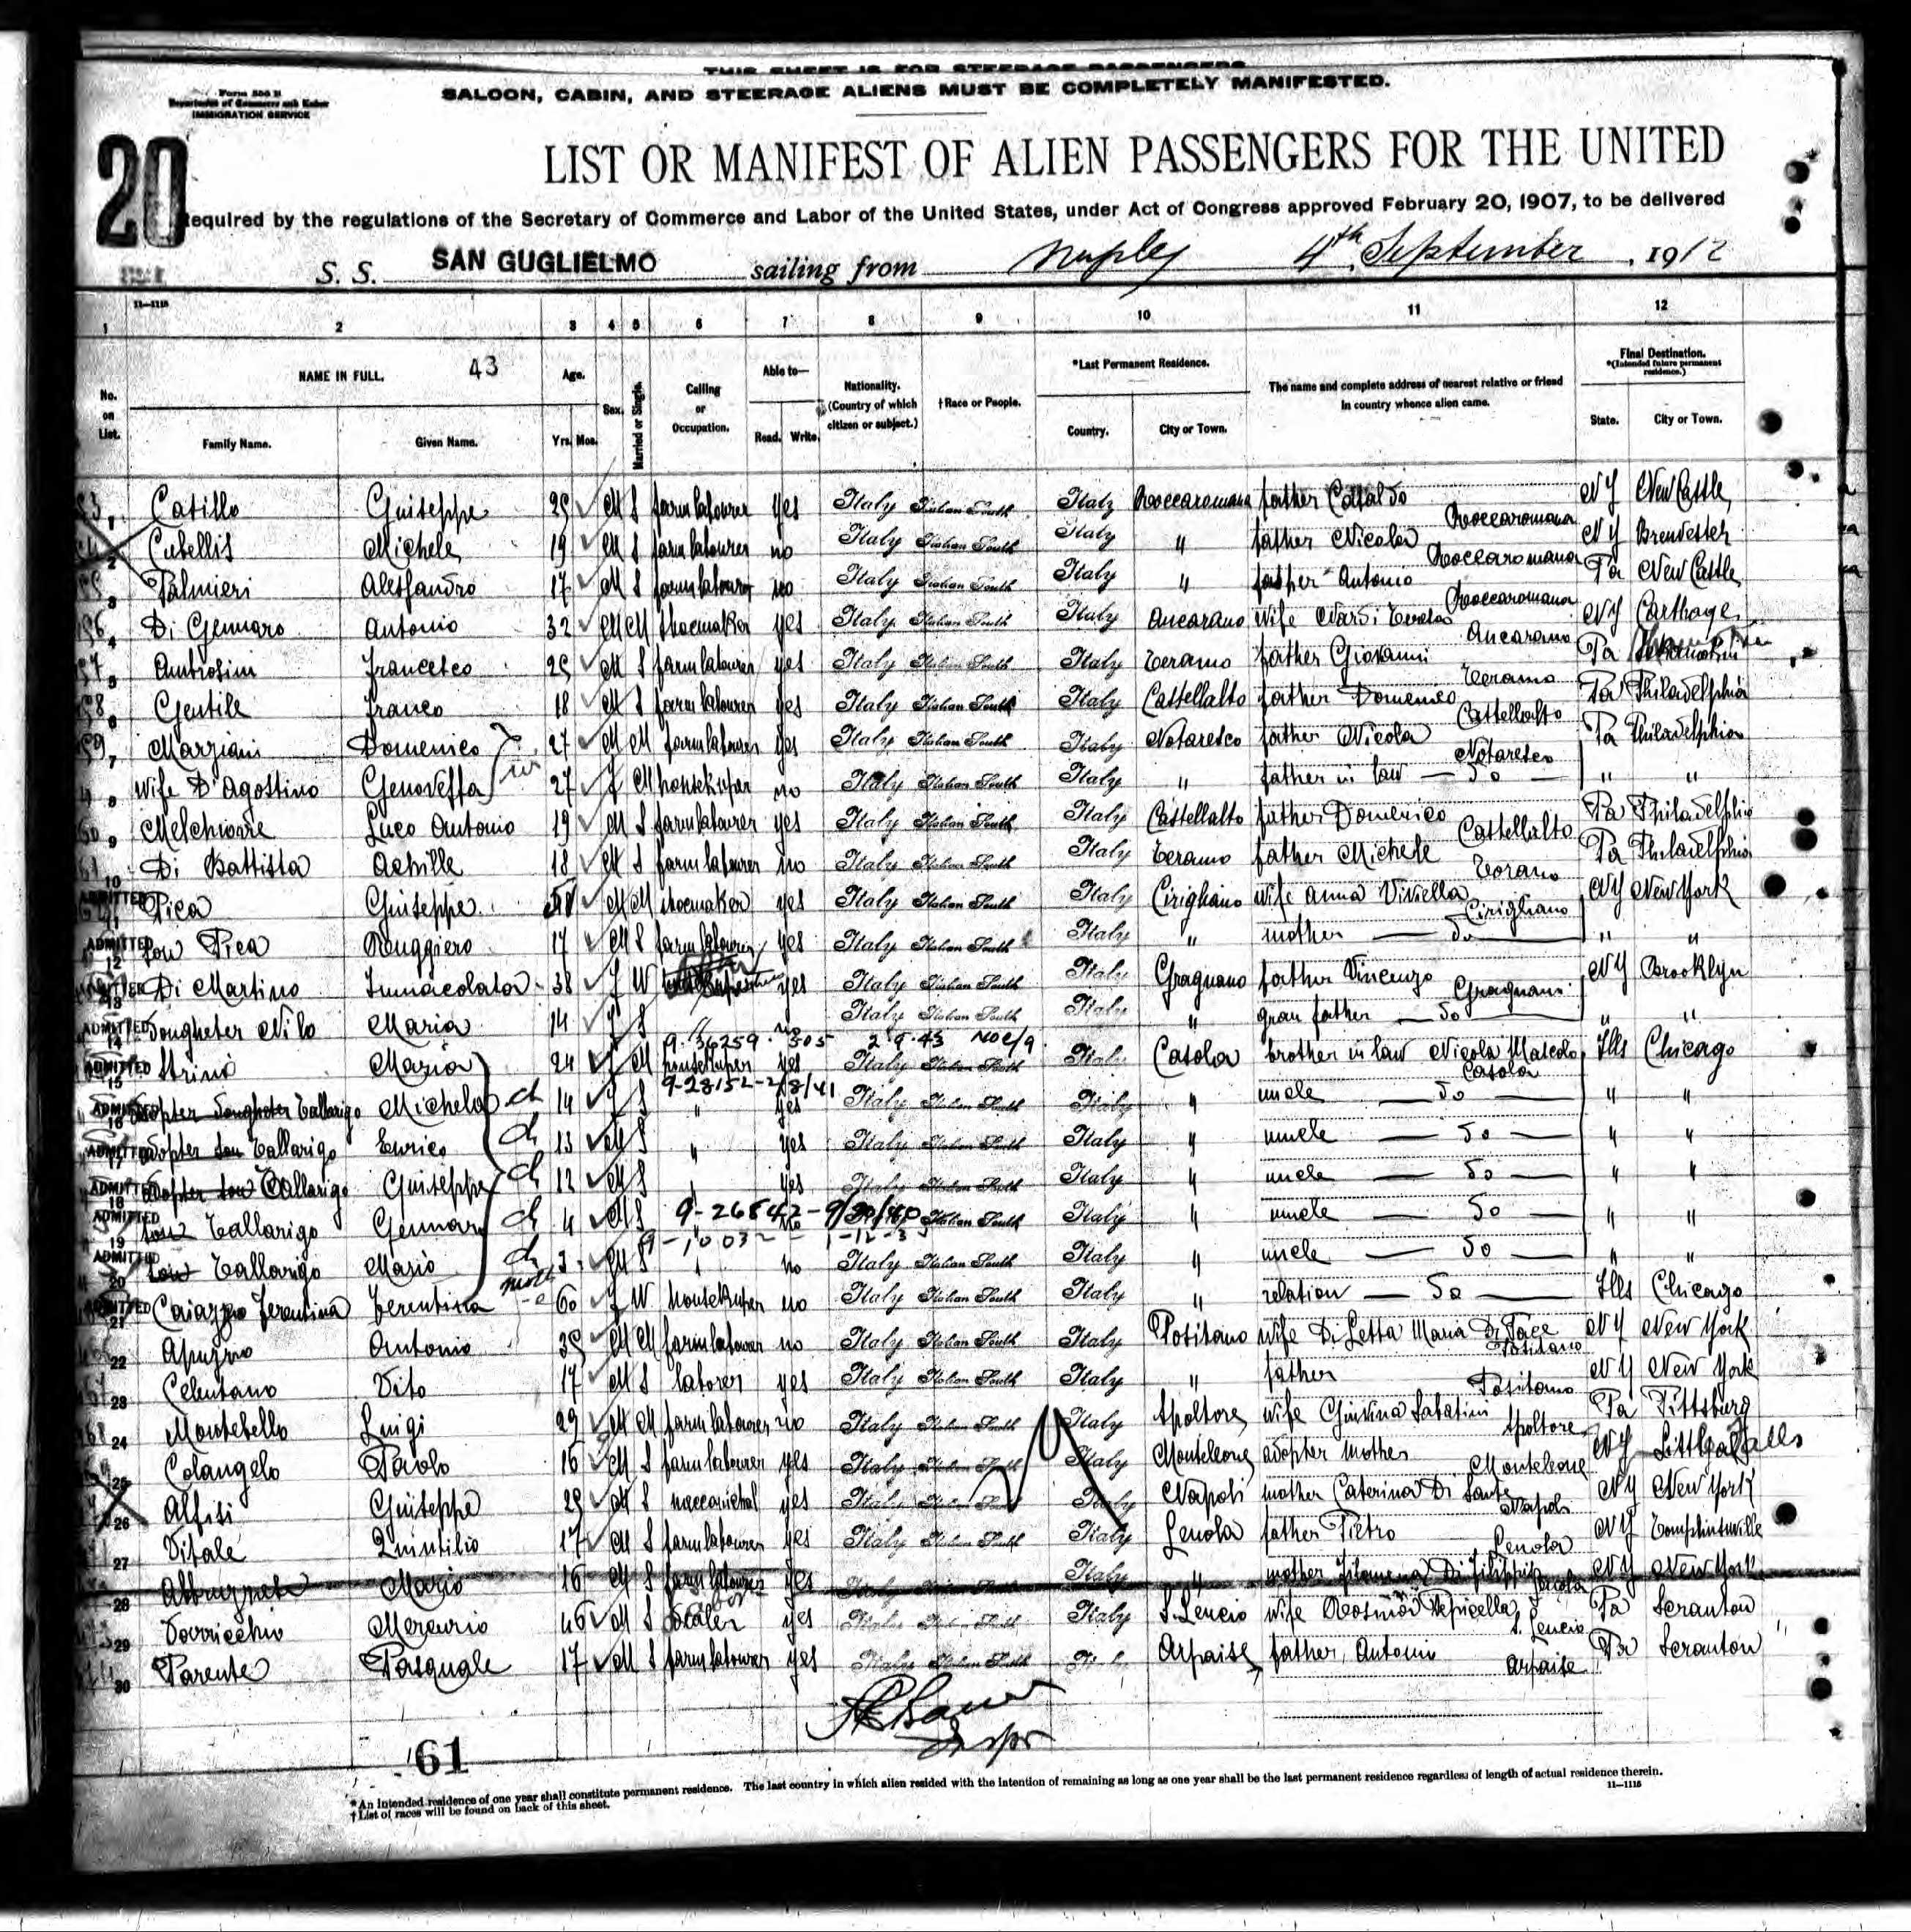 THIS SHEET IS FOR STEERAGE PASSENGERS
SALOON, CABIN, AND STEERAGE ALIENS MUST BE COMPLETELY MANIFESTED.
Form 500 B
Department of Commerce and Labor
IMMIGRATION SERVICE
20
LIST OR MANIFEST OF ALIEN PASSENGERS FOR THE UNITED
Required by the regulations of the Secretary of Commerce and Labor of the United States, under Act of Congress approved February 20, 1907, to be delivered
S. S. SAN GUGLIELMO sailing from Naples 4th September, 1912
11—1115
1 2 3 4 5 6 7 8 9 10 11 12
No. on List.
NAME IN FULL. 43
Family Name. Given Name.
Age. Yrs. Mos.
Sex.
Married or Single.
Calling or Occupation.
Able to— Read. Write.
Nationality. (Country of which citizen or subject.)
†Race or People.
*Last Permanent Residence.
Country. City or Town.
The name and complete address of nearest relative or friend in country whence alien came.
Final Destination. *(Intended future permanent residence.)
State. City or Town.
1 Catillo Guiseppe 25 M S farm labourer yes Italy Italian South Italy Roccaromana father Cataldo Roccaromana NY New Castle
2 Cubellis Michele 19 M S farm labourer no Italy Italian South Italy " father Nicola Roccaromana NY Brewester
3 Palmieri Alessandro 17 M S farm labourer no Italy Italian South Italy " father Antonio Roccaromana Pa New Castle
4 Di Gennaro Antonio 32 M M shoemaker yes Italy Italian South Italy Ancarano wife Nardi Ancarano NY Carthage
5 Ambrosini Francesco 25 M S farm labourer yes Italy Italian South Italy Teramo father Giovanni Teramo Pa
6 Gentile Franco 18 M S farm labourer yes Italy Italian South Italy Castellalto father Domenico Castellalto Pa Philadelphia
7 Marziani Domenico 27 M M farm labourer yes Italy Italian South Italy Notaresco father Nicola Notaresco Pa Philadelphia
8 wife D'Agostino Genoveffa 27 f M housekeper no Italy Italian South Italy " father in law — So — " "
9 Melchiorre Luco Antonio 19 M S farm labourer yes Italy Italian South Italy Castellalto father Domenico Castellalto Pa Philadelphia
10 Di Battista Achille 18 M S farm labourer no Italy Italian South Italy Teramo father Michele Torano Pa Philadelphia
ADMITTED 11 Pica Guiseppe M M shoemaker yes Italy Italian South Italy Cirigliano wife Anna Viviella Cirigliano NY New York
ADMITTED 12 son Pica Ruggiero 17 M S farm labourer yes Italy Italian South Italy " mother — So — " "
ADMITTED 13 Di Martino Immacolata 38 f W yes Italy Italian South Italy Gragnano father Vincenzo Gragnano NY Brooklyn
ADMITTED 14 dougheter Nilo Maria 14 f S " no Italy Italian South Italy " gran father — So — " "
9-36259 - 505 2 9-43 NOE/9
ADMITTED 15 Strino Maria 24 f M housekuper yes Italy Italian South Italy Casola brother in law Nicola Mascolo Casola Ills Chicago
9-28152-2/8/41
ADMITTED 16 adopter doughter Tallarigo Michela ch 14 f S " yes Italy Italian South Italy " uncle — So — " "
ADMITTED 17 adopter son Tallarigo Enrico ch 13 M S " yes Italy Italian South Italy " uncle — So — " "
ADMITTED 18 adopter son Tallarigo Guiseppe ch 12 M S " yes Italy Italian South Italy " uncle — So — " "
ADMITTED 19 son Tallarigo Gennaro ch 4 M S 9-26842-9/30/40 no Italy Italian South Italy " uncle — So — " "
ADMITTED 20 son Tallarigo Mario ch 3 M S " no Italy Italian South Italy " uncle — So — " "
ADMITTED 21 Caiazzo Ferentina Terentina 60 f W housekuper no Italy Italian South Italy " relation — So — Ills Chicago
22 Apuzzo Antonio 35 M M farm labourer no Italy Italian South Italy Positano wife Di Letta Maria Di Pace Positano NY New York
23 Celentano Vito 17 M S laborer yes Italy Italian South Italy " father Positano NY New York
24 Montebello Luigi 29 M M farm labourer no Italy Italian South Italy Spoltore wife Giuvina Sabatini Spoltore Pa Pittsburg
25 Colangelo Paolo 16 M S farm labourer yes Italy Italian South Italy Monteleone adopter mother Monteleone NY Little Falls
26 Alfisi Guiseppe 29 M S yes Italy Italian South Italy Napoli mother Caterina Di Sante Napoli NY New York
27 Vitale Quintilio 17 M S farm labourer yes Italy Italian South Italy Lenola father Pietro Lenola NY Tompkinsville
28 Abbruzzete Mario 16 M S farm labourer yes Italy Italian South Italy " mother Filomena Di Filippis Lenola NY New York
29 Vorricchio Mercurio 46 M S yes Italy Italian South Italy S. Leucio wife S. Leucio Pa Scranton
30 Parente Pasquale 17 M S farm labourer yes Italy Italian South Italy Arpaise father Antonio Arpaise Pa Scranton
Inspr
61
*An intended residence of one year shall constitute permanent residence. The last country in which alien resided with the intention of remaining as long as one year shall be the last permanent residence regardless of length of actual residence therein.
†List of races will be found on back of this sheet.
11—1115